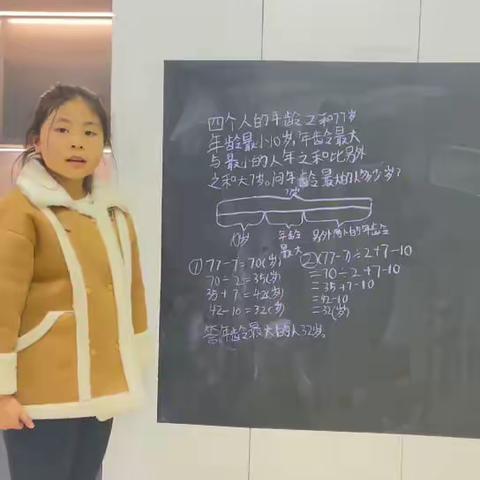 四个人的年龄之和77岁
年龄最小10岁,年龄最大
与最小的人年之和比另外
之和大7岁。问年龄最大的人多少岁?
10岁 年龄最大 另外两人的年龄和
① 77-7=70(岁)
70÷2=35(岁)
35+7=42(岁)
42-10=32(岁)
②(77-7)÷2+7-10
=70÷2+7-10
=35+7-10
=42-10
=32(岁)
答:年龄最大的人32岁。